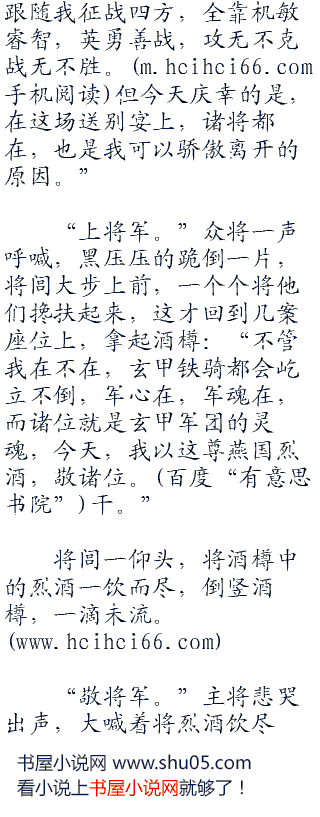 跟随我征战四方，全靠机敏
睿智，英勇善战，攻无不克
战无不胜。(m.hcihci66.com
手机阅读)但今天庆幸的是，
在这场送别宴上，诸将都
在，也是我可以骄傲离开的
原因。”
“上将军。”众将一声
呼喊，黑压压的跪倒一片，
将闾大步上前，一个个将他
们搀扶起来，这才回到几案
座位上，拿起酒樽：“不管
我在不在，玄甲铁骑都会屹
立不倒，军心在，军魂在，
而诸位就是玄甲军团的灵
魂，今天，我以这尊燕国烈
酒，敬诸位。(百度“有意思
书院”)干。”
将闾一仰头，将酒樽中
的烈酒一饮而尽，倒竖酒
樽，一滴未流。
(www.hcihci66.com)
“敬将军。”主将悲哭
出声，大喊着将烈酒饮尽
书屋小说网 www.shu05.com
看小说上书屋小说网就够了！